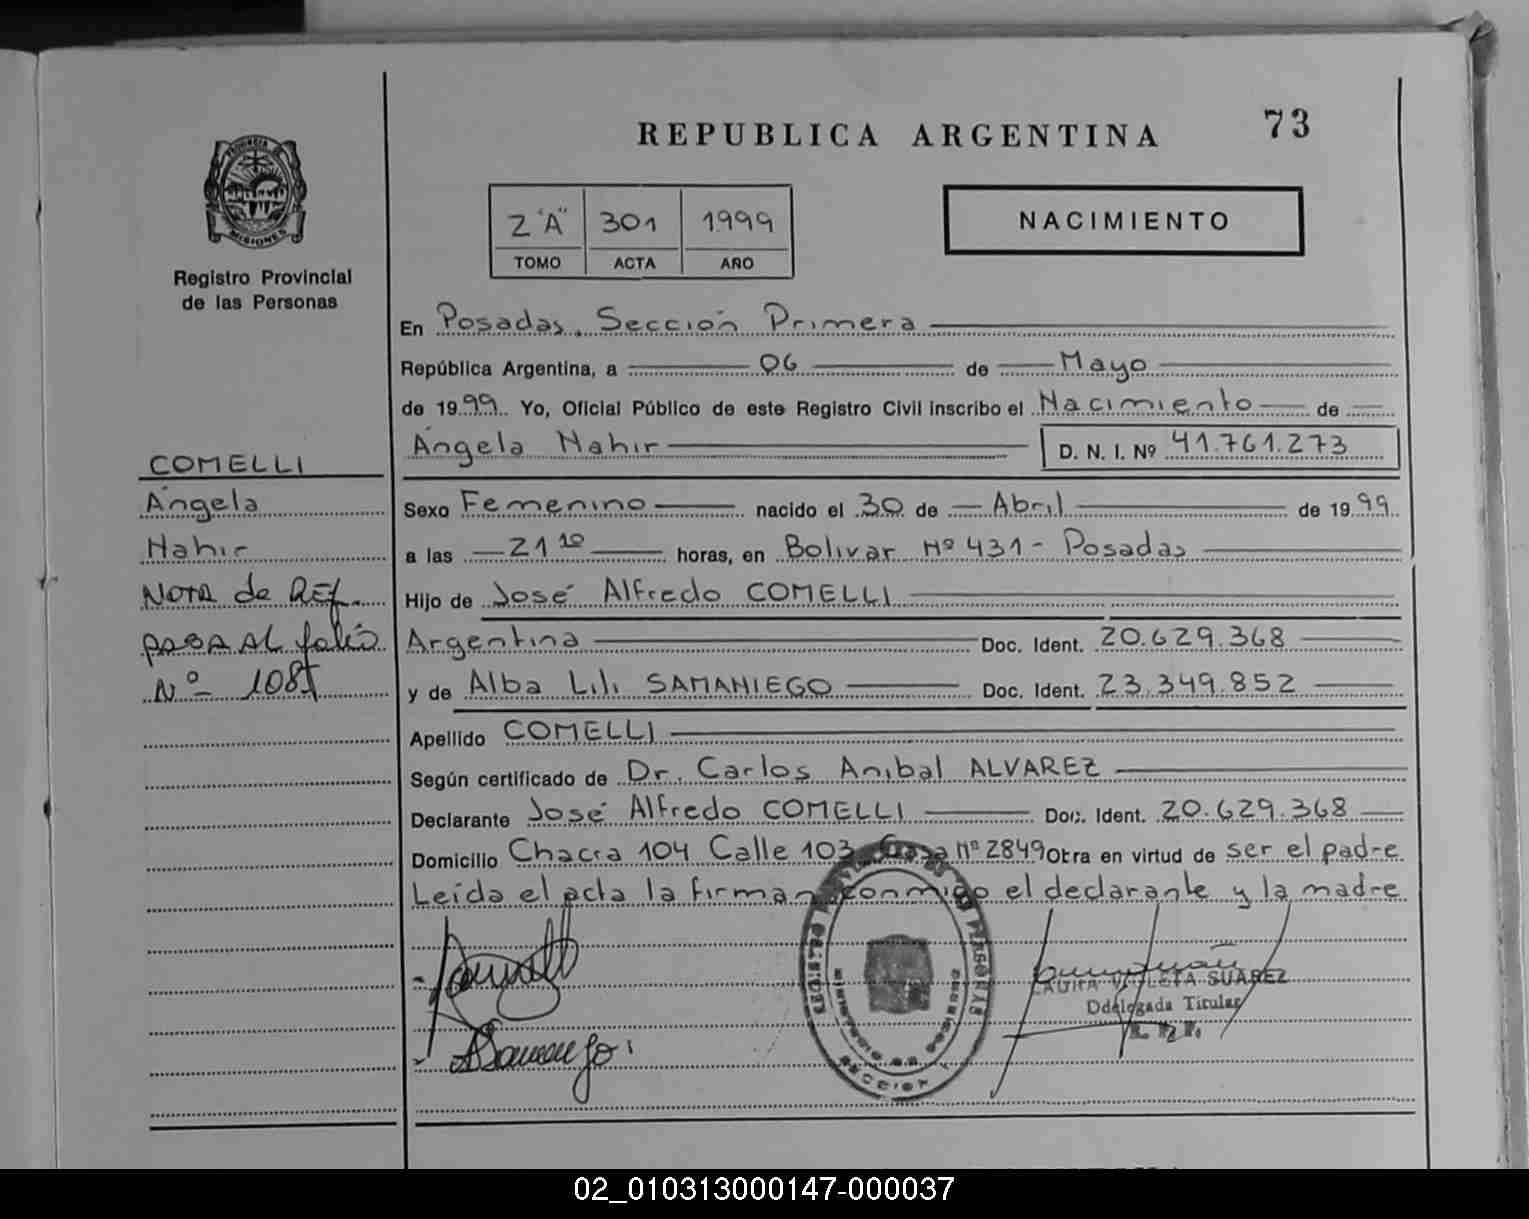 PROVINCIA DE
MISIONES
Registro Provincial
de las Personas
COMELLI
Ángela
Nahir
Nota de REF.
pasa al folio
Nº 1085
REPUBLICA ARGENTINA
73
2 "A" 301 1999
TOMO ACTA AÑO
NACIMIENTO
En Posadas, Sección Primera
República Argentina, a 06 de Mayo
de 1999 Yo, Oficial Público de este Registro Civil inscribo el Nacimiento de
Ángela Nahir D. N. I. Nº 41.761.273
Sexo Femenino nacido el 30 de Abril de 1999
a las 21 10 horas, en Bolivar Nº 431 - Posadas
Hijo de José Alfredo COMELLI
Argentina Doc. Ident. 20.629.368
y de Alba Lili SAMANIEGO Doc. Ident. 23.349.852
Apellido COMELLI
Según certificado de Dr. Carlos Anibal ALVAREZ
Declarante José Alfredo COMELLI Doc. Ident. 20.629.368
Domicilio Chacra 104 Calle 103 Casa Nº 2849 Otra en virtud de ser el padre
Leída el acta la firman conmigo el declarante y la madre
MINISTERIO DE GOBIERNO
SECCION 1
LAURA VIOLETA SUAREZ
Ddelegada Titular
R. P. P.
02_010313000147-000037